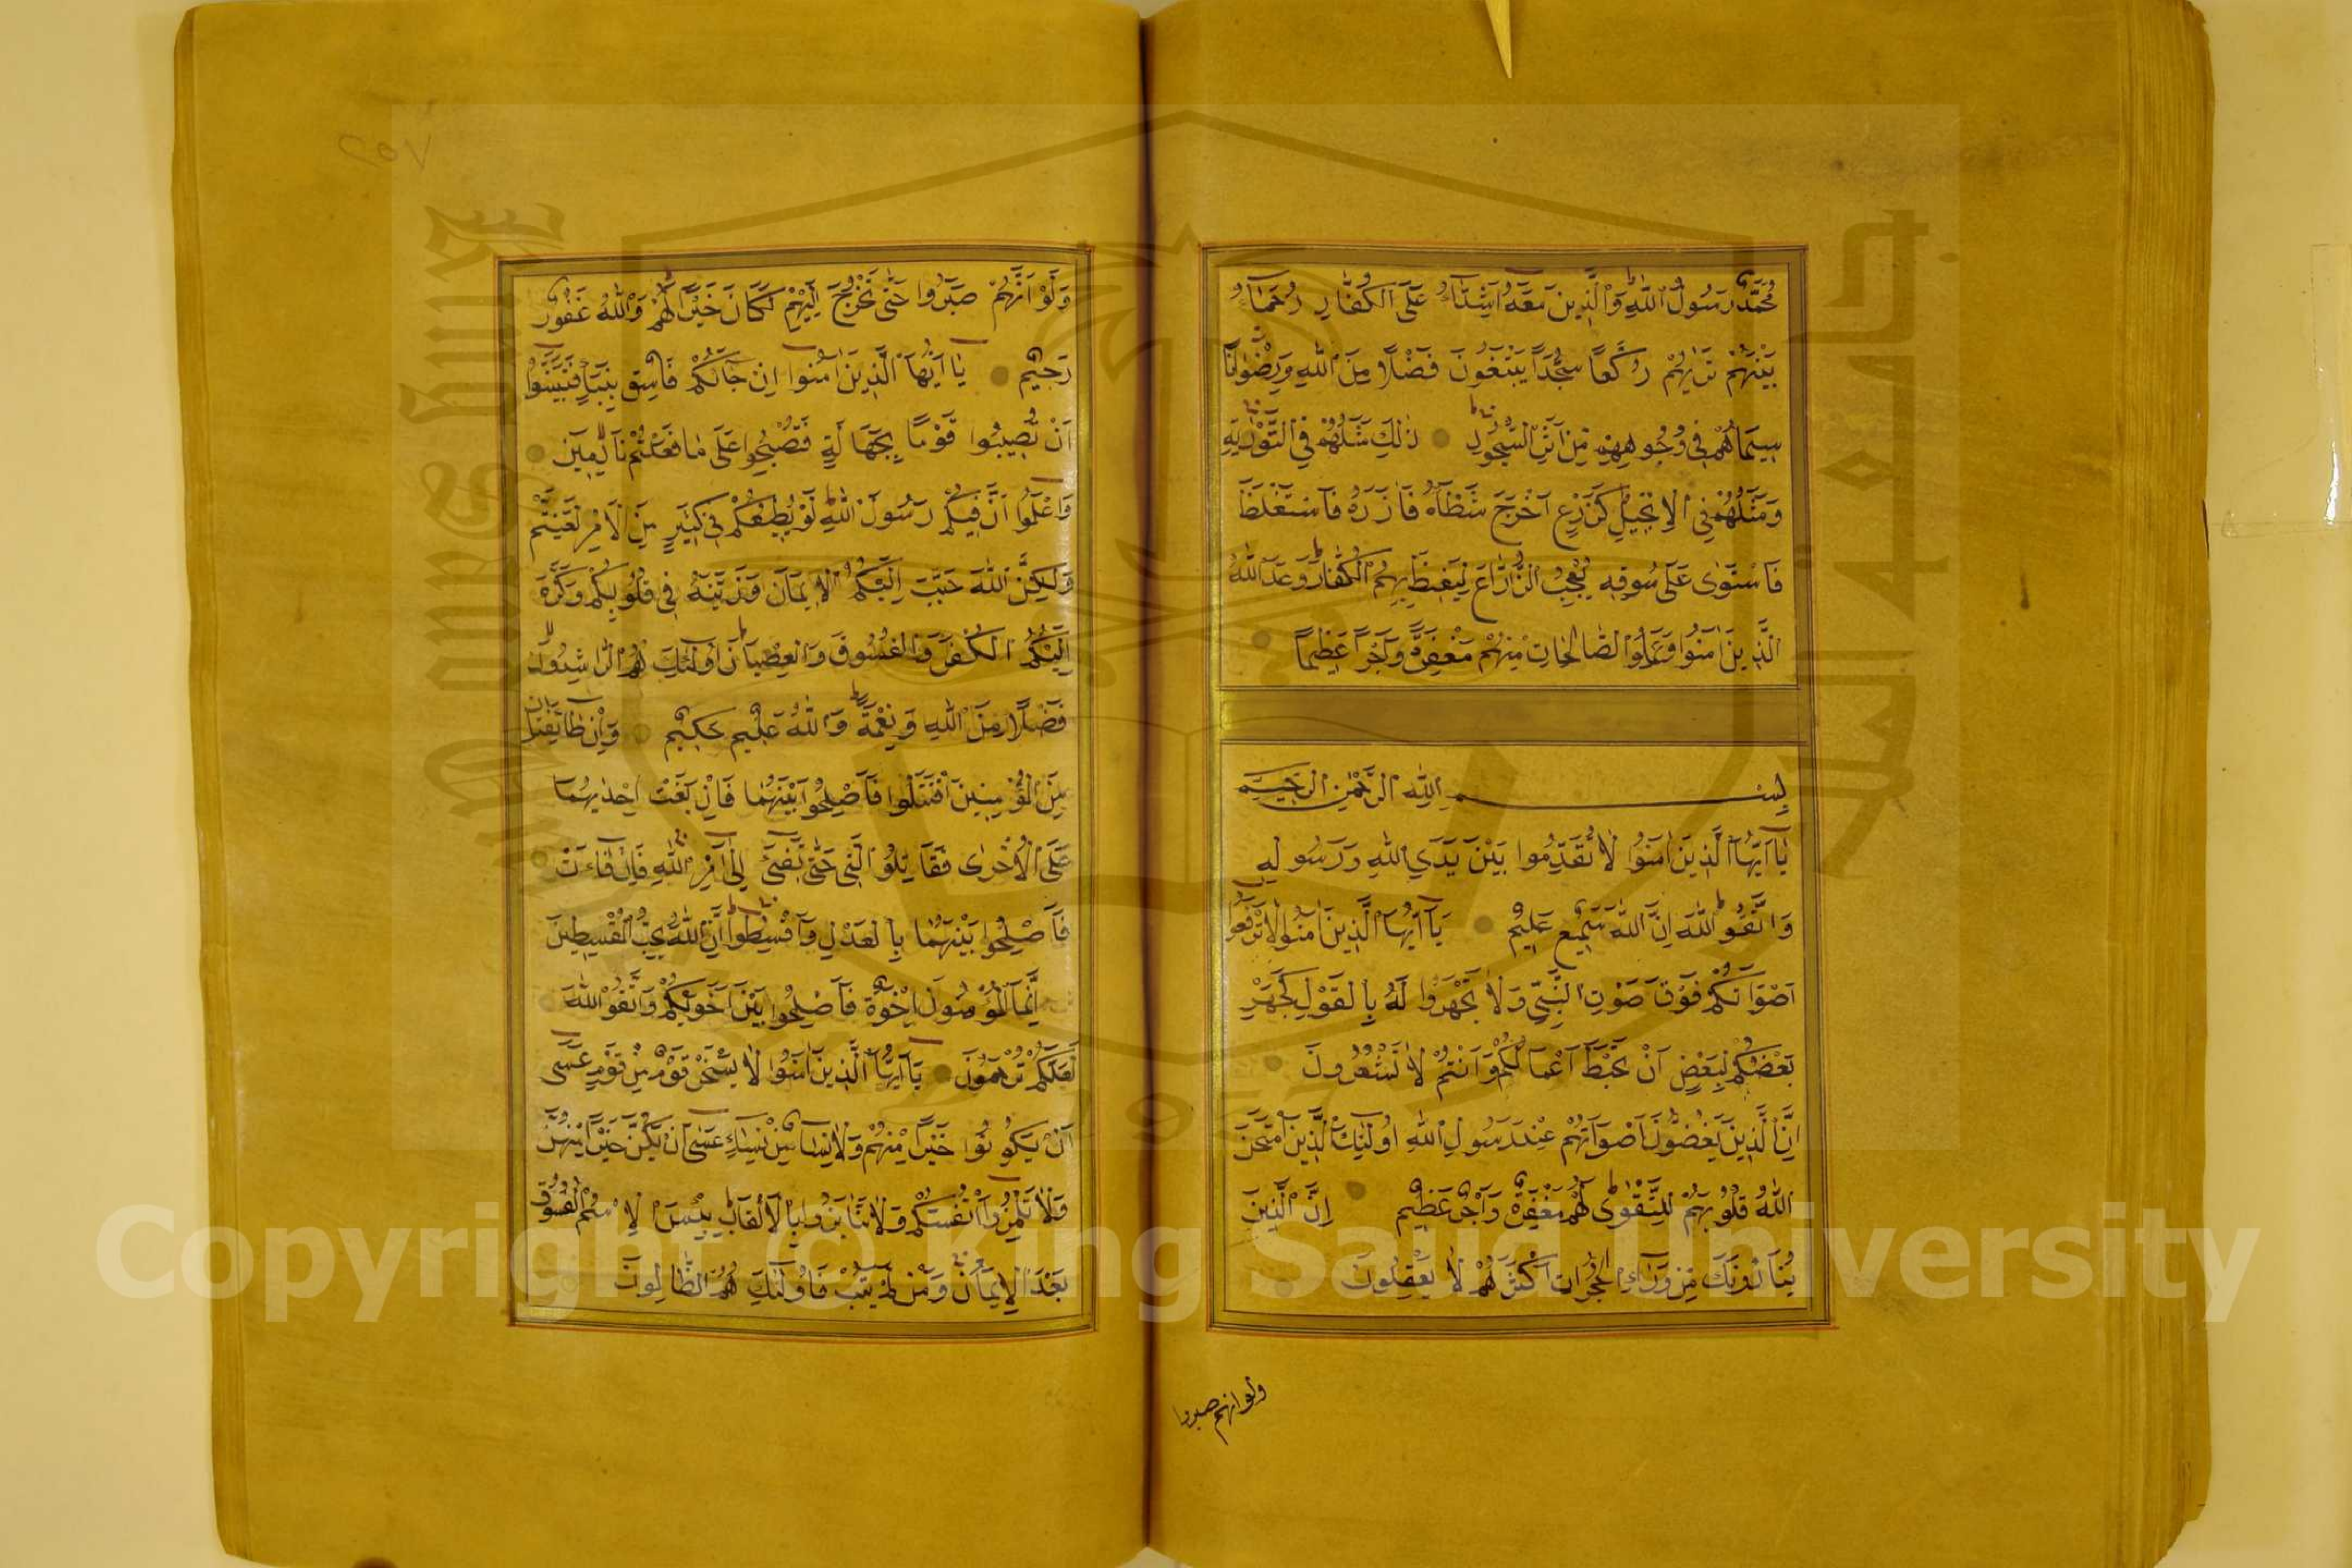 مُحَمَّدٌ رَسُولُ اللهِ وَالَّذِينَ مَعَهُ اَشِدَّآءُ عَلَى الْكُفَّارِ رُحَمَآءُ
بَيْنَهُمْ تَرٰيهُمْ رُكَّعًا سُجَّدًا يَبْتَغُونَ فَضْلًا مِنَ اللهِ وَرِضْوَانًا
سِيمَاهُمْ فِي وُجُوهِهِمْ مِنْ اَثَرِ السُّجُودِ ذٰلِكَ مَثَلُهُمْ فِي التَّوْرٰيةِ
وَمَثَلُهُمْ فِي الْاِنْجِيلِ كَزَرْعٍ اَخْرَجَ شَطْاَهُ فَاٰزَرَهُ فَاسْتَغْلَظَ
فَاسْتَوٰى عَلَى سُوقِهِ يُعْجِبُ الزُّرَّاعَ لِيَغِيظَ بِهِمُ الْكُفَّارَ وَعَدَ اللهُ
الَّذِينَ اٰمَنُوا وَعَمِلُوا الصَّالِحَاتِ مِنْهُمْ مَغْفِرَةً وَاَجْرًا عَظِيمًا
بِسْمِ اللهِ الرَّحْمٰنِ الرَّحِيمِ
يَا اَيُّهَا الَّذِينَ اٰمَنُوا لَا تُقَدِّمُوا بَيْنَ يَدَيِ اللهِ وَرَسُولِهِ
وَاتَّقُوا اللهَ اِنَّ اللهَ سَمِيعٌ عَلِيمٌ يَا اَيُّهَا الَّذِينَ اٰمَنُوا لَا تَرْفَعُوا
اَصْوَاتَكُمْ فَوْقَ صَوْتِ النَّبِيِّ وَلَا تَجْهَرُوا لَهُ بِالْقَوْلِ كَجَهْرِ
بَعْضِكُمْ لِبَعْضٍ اَنْ تَحْبَطَ اَعْمَالُكُمْ وَاَنْتُمْ لَا تَشْعُرُونَ
اِنَّ الَّذِينَ يَغُضُّونَ اَصْوَاتَهُمْ عِنْدَ رَسُولِ اللهِ اُولٰئِكَ الَّذِينَ امْتَحَنَ
اللهُ قُلُوبَهُمْ لِلتَّقْوٰى لَهُمْ مَغْفِرَةٌ وَاَجْرٌ عَظِيمٌ اِنَّ الَّذِينَ
يُنَادُونَكَ مِنْ وَرَآءِ الْحُجُرَاتِ اَكْثَرُهُمْ لَا يَعْقِلُونَ
ولو انهم صبروا
٢٥٧
وَلَوْ اَنَّهُمْ صَبَرُوا حَتّٰى تَخْرُجَ اِلَيْهِمْ لَكَانَ خَيْرًا لَهُمْ وَاللهُ غَفُورٌ
رَحِيمٌ يَا اَيُّهَا الَّذِينَ اٰمَنُوا اِنْ جَآءَكُمْ فَاسِقٌ بِنَبَإٍ فَتَبَيَّنُوا
اَنْ تُصِيبُوا قَوْمًا بِجَهَالَةٍ فَتُصْبِحُوا عَلَى مَا فَعَلْتُمْ نَادِمِينَ
وَاعْلَمُوا اَنَّ فِيكُمْ رَسُولَ اللهِ لَوْ يُطِيعُكُمْ فِي كَثِيرٍ مِنَ الْاَمْرِ لَعَنِتُّمْ
وَلٰكِنَّ اللهَ حَبَّبَ اِلَيْكُمُ الْاِيمَانَ وَزَيَّنَهُ فِي قُلُوبِكُمْ وَكَرَّهَ
اِلَيْكُمُ الْكُفْرَ وَالْفُسُوقَ وَالْعِصْيَانَ اُولٰئِكَ هُمُ الرَّاشِدُونَ
فَضْلًا مِنَ اللهِ وَنِعْمَةً وَاللهُ عَلِيمٌ حَكِيمٌ وَاِنْ طَآئِفَتَانِ
مِنَ الْمُؤْمِنِينَ اقْتَتَلُوا فَاَصْلِحُوا بَيْنَهُمَا فَاِنْ بَغَتْ اِحْدٰيهُمَا
عَلَى الْاُخْرٰى فَقَاتِلُوا الَّتِي حَتّٰى تَفِيءَ اِلٰى اَمْرِ اللهِ فَاِنْ فَآءَتْ
فَاَصْلِحُوا بَيْنَهُمَا بِالْعَدْلِ وَاَقْسِطُوا اِنَّ اللهَ يُحِبُّ الْمُقْسِطِينَ
اِنَّمَا الْمُؤْمِنُونَ اِخْوَةٌ فَاَصْلِحُوا بَيْنَ اَخَوَيْكُمْ وَاتَّقُوا اللهَ
لَعَلَّكُمْ تُرْحَمُونَ يَا اَيُّهَا الَّذِينَ اٰمَنُوا لَا يَسْخَرْ قَوْمٌ مِنْ قَوْمٍ عَسٰى
اَنْ يَكُونُوا خَيْرًا مِنْهُمْ وَلَا نِسَآءٌ مِنْ نِسَآءٍ عَسٰى اَنْ يَكُنَّ خَيْرًا مِنْهُنَّ
وَلَا تَلْمِزُوا اَنْفُسَكُمْ وَلَا تَنَابَزُوا بِالْاَلْقَابِ بِئْسَ الِاسْمُ الْفُسُوقُ
بَعْدَ الْاِيمَانِ وَمَنْ لَمْ يَتُبْ فَاُولٰئِكَ هُمُ الظَّالِمُونَ
Copyright © King Saud University